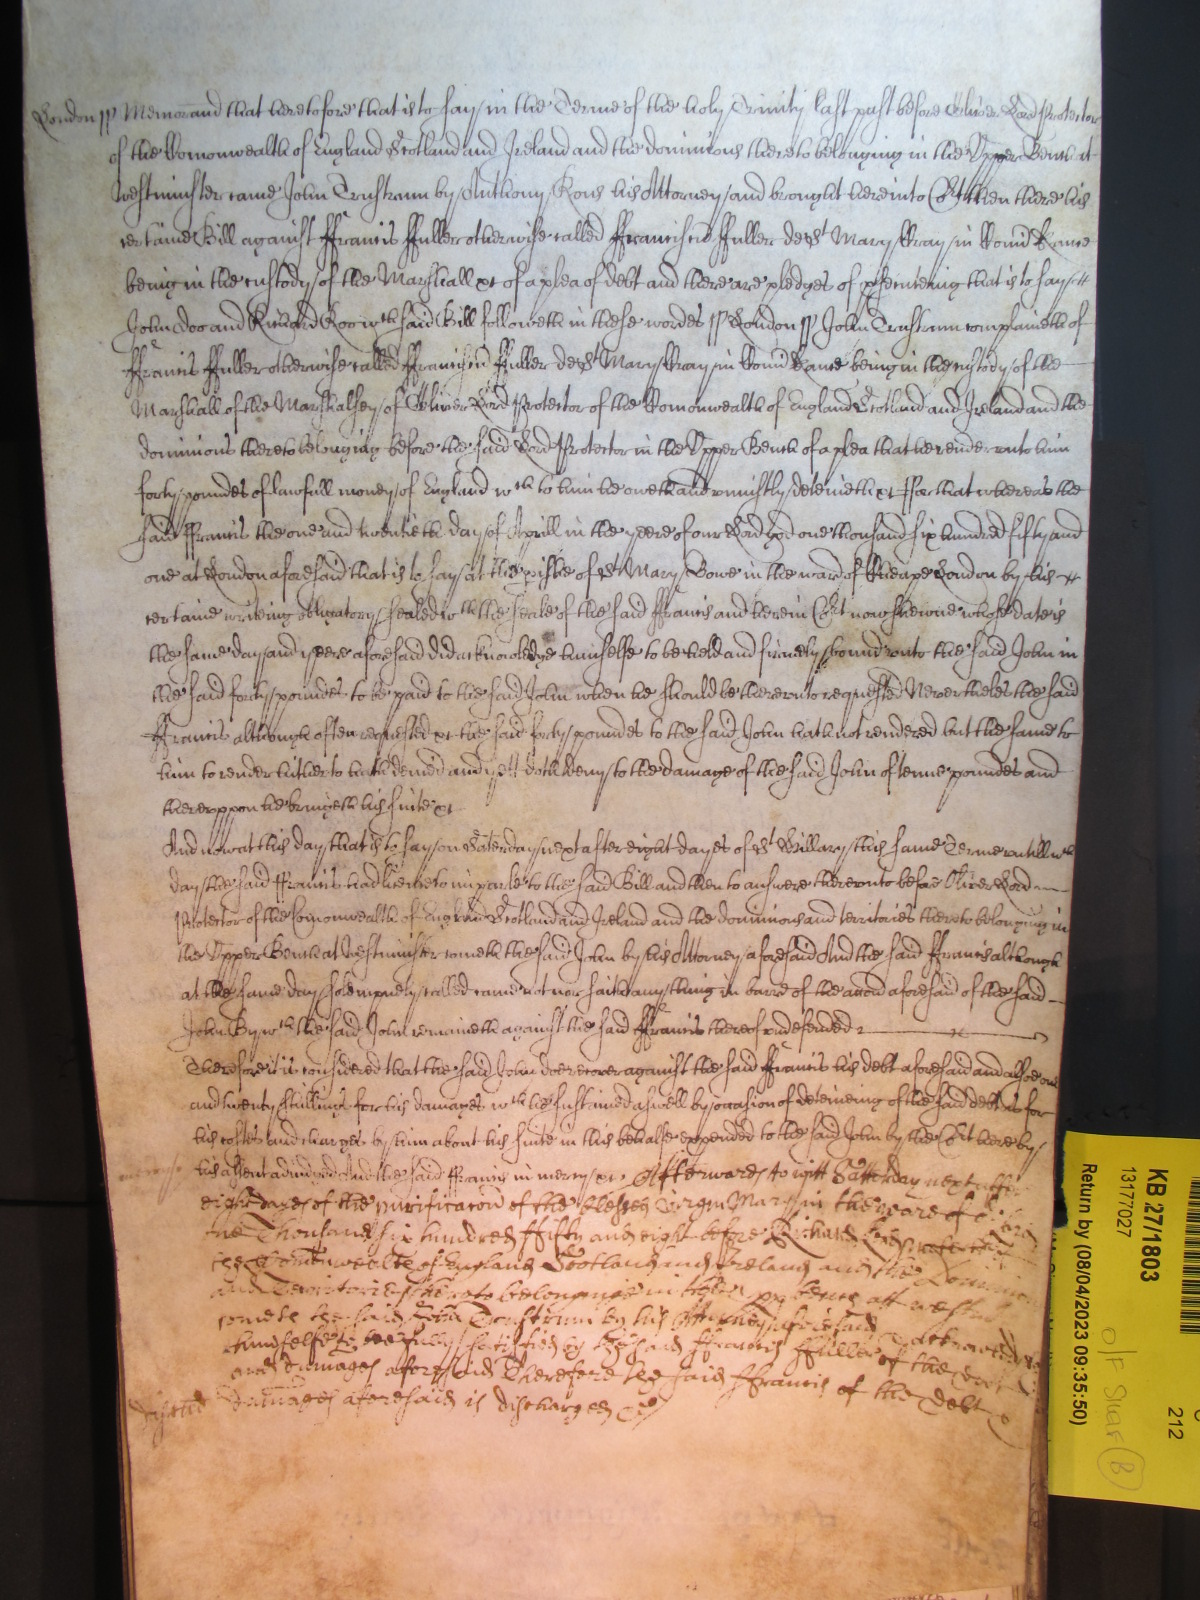 London ss Memorand that heretofore that is to say in the Terme of the holy Trinity last past before Oliver Lord Protector
of the Comonwealth of England Scotland and Ireland and the dominions thereto belonging in the Upper Bench at
Westminster came John Trustram by Anthony Rous his Attorney and brought here into Cort then there his
certaine Bill against ffrancis ffuller otherwise called ffranciscu ffuller de St Mary Cray in Com Kance
being in the custody of the Marshall &c of a plea of debt and there are pledges of psecuteing that is to say
John Doo and Richard Roo wch said Bill followeth in these wordes ss London ss John Trustram complaineth of
ffrancis ffuller otherwise called ffranciscu ffuller de St Mary Cray in Com Kance being in the custody of the
Marshall of the Marshalsey of Oliver Lord Protector of the Comonwealth of England Scotland and Ireland and the
dominions thereto belonging before the said Lord Protector in the Upper Bench of a plea that he render unto him
forty poundes of lawfull money of England wch to him he oweth and uniustly deteineth &c For that whereas the
said ffrancis the one and twentieth day of Aprill in the yeere of our Lord god one thousand six hundred fifty and
one at London aforesaid that is to say at the pishe of St Mary Bowe in the ward of Cheape London by his
certaine writing obligatory sealed wth the seale of the said ffrancis and here in Cort now shewne whose date is
the same day and yeere aforesaid did acknowledge himselfe to be held and firmely bound unto the said John in
the said forty poundes to be paid to the said John when he should be thereunto requested Nevertheles the said
ffrancis although often requested &c the said forty poundes to the said John hath not rendered but the same to
him to render hitherto hath denied and yett doth deny to the damage of the said John of tenne poundes and
thereuppon he bringeth his suite &c
And now at this day that is to say on Saterday next after eight dayes of St Hillary this same Terme untill wch
day the said ffrancis had licence to imparle to the said Bill and then to answere thereunto before Oliver Lord
Protector of the Comonwealth of England Scotland and Ireland and the dominions and territories thereto belonging in
the Upper Bench at Westminster cometh the said John by his Attorney aforesaid And the said ffrancis although
at the same day solempnely called came not nor saith any thing in barre of the accon aforesaid of the said
John By wch the said John remaineth against the said ffrancis thereof undefended
Therefore it is considered that the said John doe recover against the said ffrancis his debt aforesaid and alsoe one
and twenty shillings for his damages wch he sustained aswell by occasion of deteineing of the said debt as for
his costes and charges by him about his suite in this behalfe expended to the said John by the Cort here by
his assent adiudged And the said ffrancis in mercy &c Afterwards to witt Satterday next after
eight dayes of the purificacon of the blessed Virgin Mary in the yeare of
Thousand six hundred ffifty and eight before Richard Lord protector
Comonwealth of England Scotland and Ireland and the Dominions
and Territories thereto belonginge in the upp bench att westm
cometh the said John Trustram by his Attorney aforesaid
himselfe to bee fully satisfied by the said ffrancis ffuller of the debt
and damages aforesaid Therefore the said ffrancis of the debt
damages aforesaid is discharged &c
KB 27/1803
13177027
Return by (08/04/2023 09:35:50)
212
O/F Shelf B